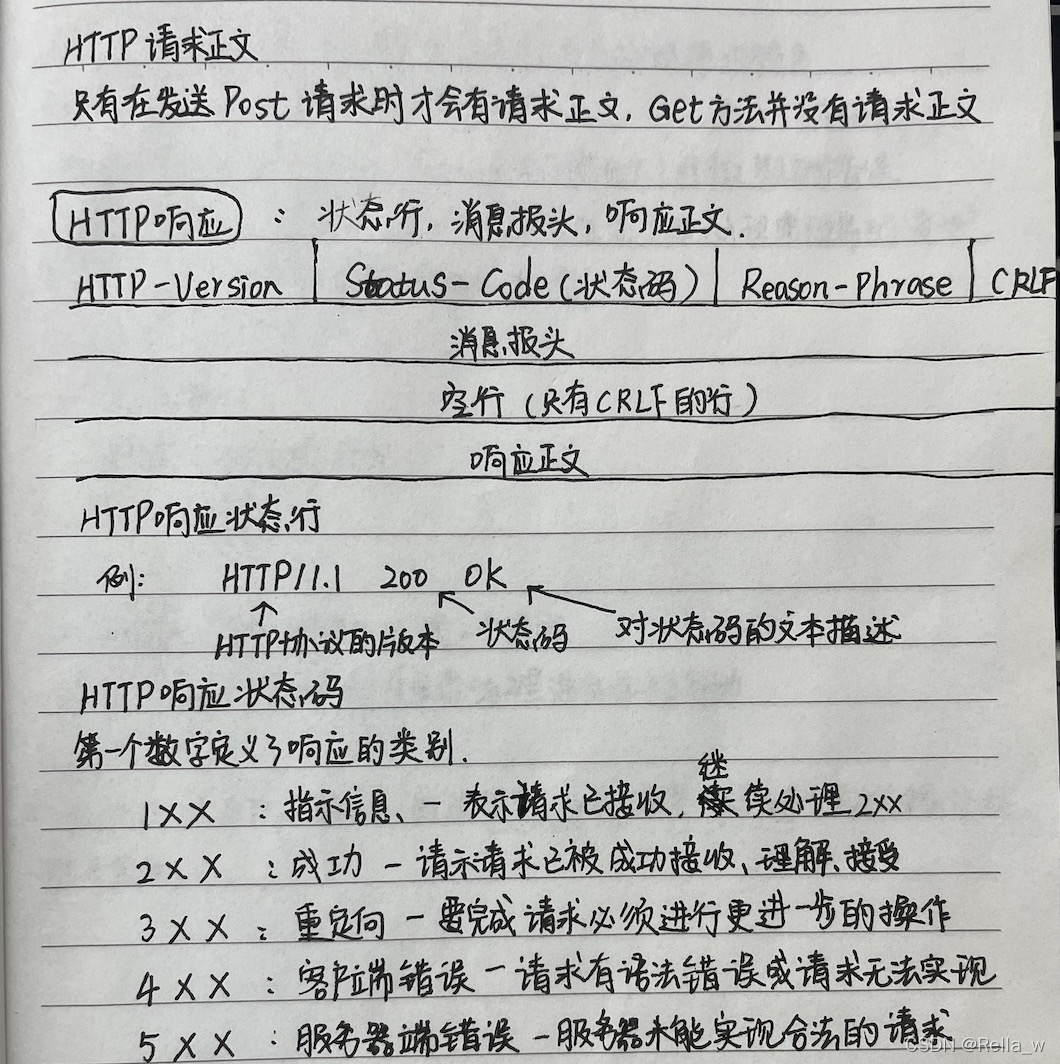 HTTP 请求正文
只有在发送 Post 请求时才会有请求正文, Get方法并没有请求正文
HTTP响应 : 状态行, 消息报头, 响应正文.
HTTP-Version | Status-Code (状态码) | Reason-Phrase | CRLF
消息报头
空行 (只有CRLF的行)
响应正文
HTTP响应状态行
例: HTTP/1.1 200 OK
HTTP协议的版本 状态码 对状态码的文本描述
HTTP响应状态码
第一个数字定义了响应的类别.
1XX : 指示信息、- 表示请求已接收, 继续处理 2xx
2XX : 成功 - 请示请求已被成功接收、理解、接受
3XX : 重定向 - 要完成请求必须进行更进一步的操作
4XX : 客户端错误 - 请求有语法错误或请求无法实现
5XX : 服务器端错误 - 服务器未能实现合法的请求
CSDN @Rella_w